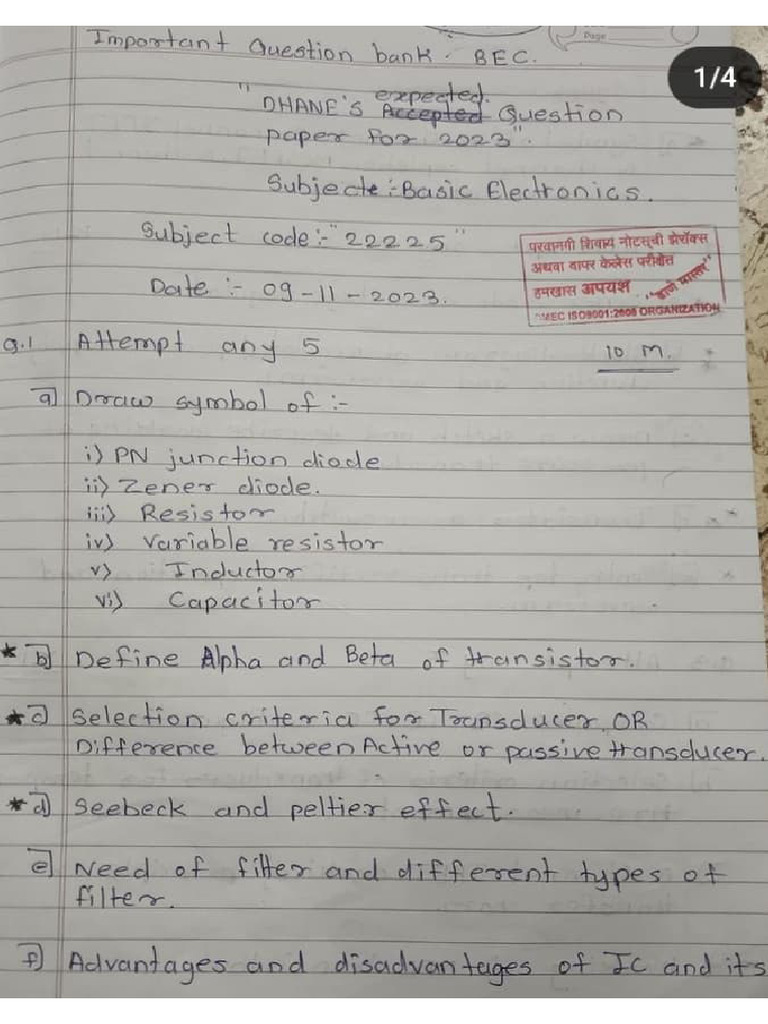 Page
Important Question bank. BEC.
1/4
"DHANE'S expected Accepted Question
paper for 2023".
Subject :- Basic Electronics.
Subject code :- "22225"
Date :- 09-11-2023.
परवानगी शिवाय नोटसूची झेरॉक्स
अथवा वापर केलेस परीक्षेत
हमखास अपयश
AMEC ISO9001:2008 ORGANIZATION
Q.1 Attempt any 5 10 M.
a) Draw symbol of :-
i) PN junction diode
ii) Zener diode.
iii) Resistor
iv) variable resistor
v) Inductor
vi) Capacitor
* b) Define Alpha and Beta of transistor.
* c) Selection criteria for Transducer OR
Difference between Active or passive transducer.
* d) Seebeck and peltier effect.
e) Need of filter and different types of
filter.
f) Advantages and disadvantages of IC and its